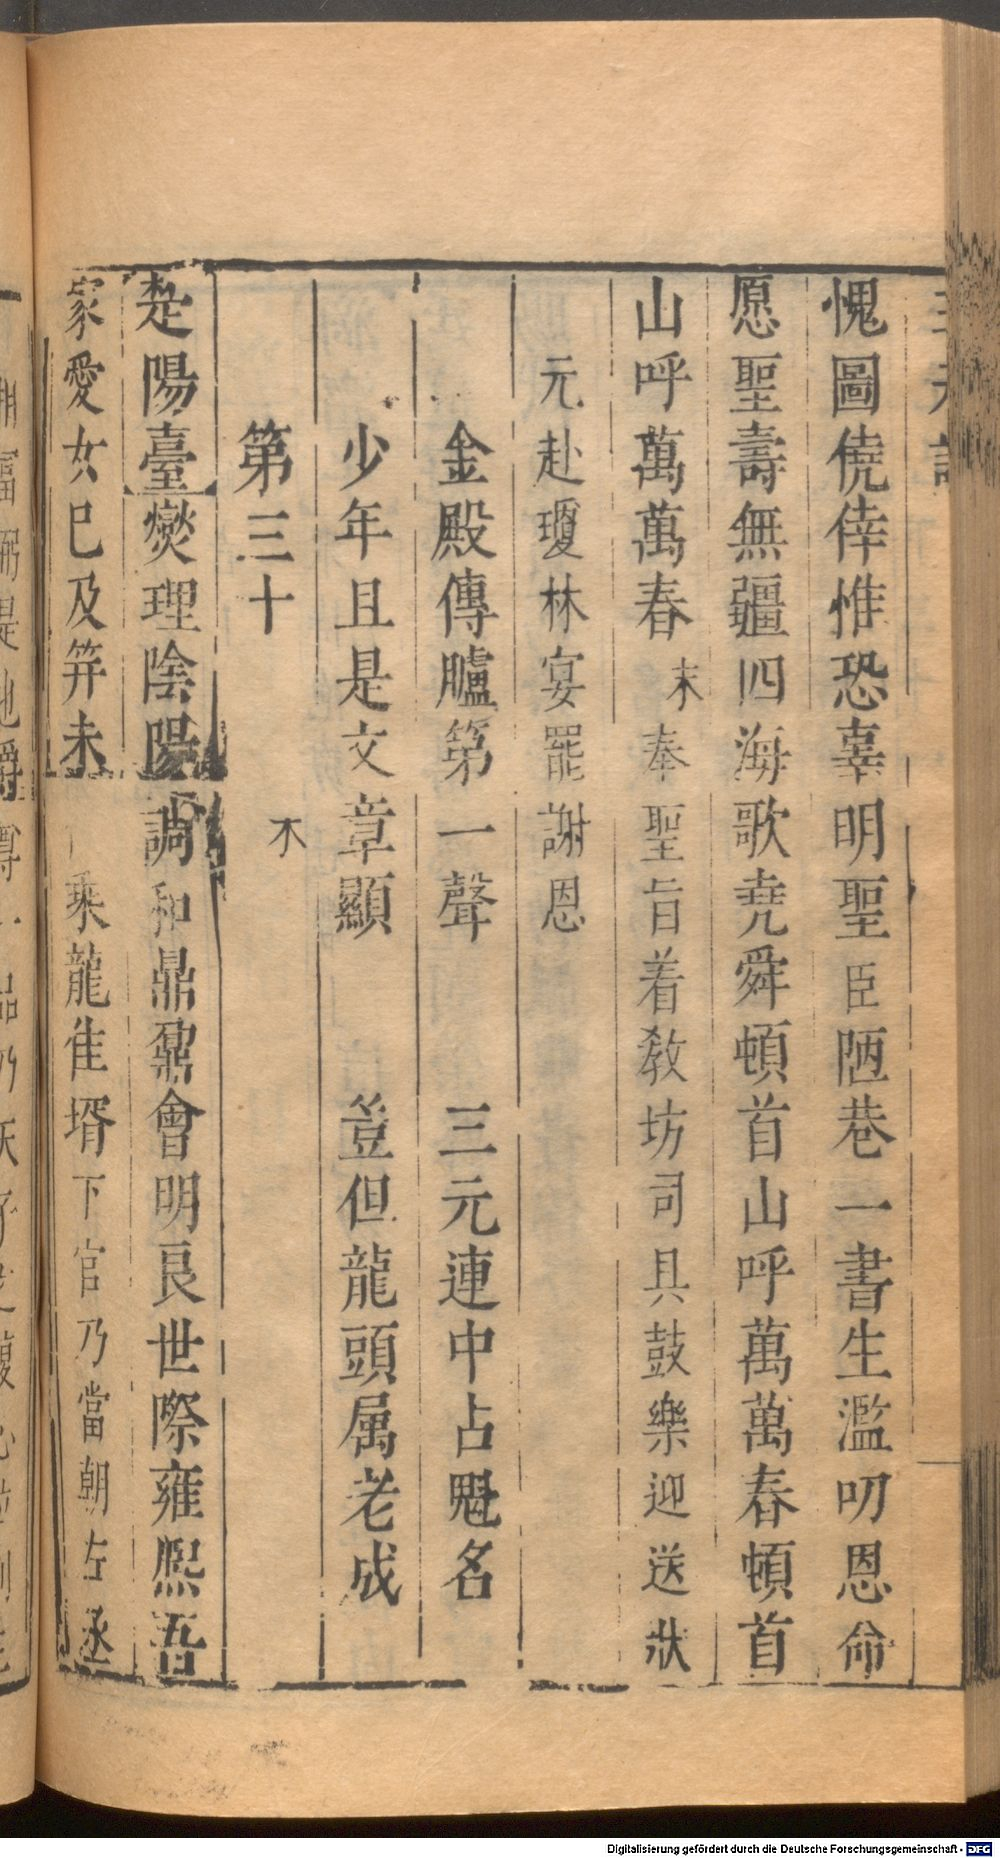 愧圖僥倖惟恐辜明聖臣陋巷一書生濫叨恩命
愿聖壽無疆四海歌堯舜頓首山呼萬萬春頓首
山呼萬萬春末奉聖旨着教坊司具鼓樂迎送狀
元赴瓊林宴罷謝恩
金殿傳臚第一聲 三元連中占魁名
少年且是文章顯 豈但龍頭属老成
第三十
楚陽臺燮理陰陽調和鼎鼐會明良世際雍熙吾
家愛女已及笄未 乘龍佳壻下官乃當朝左丞
Digitalisierung gefördert durch die Deutsche Forschungsgemeinschaft - DFG